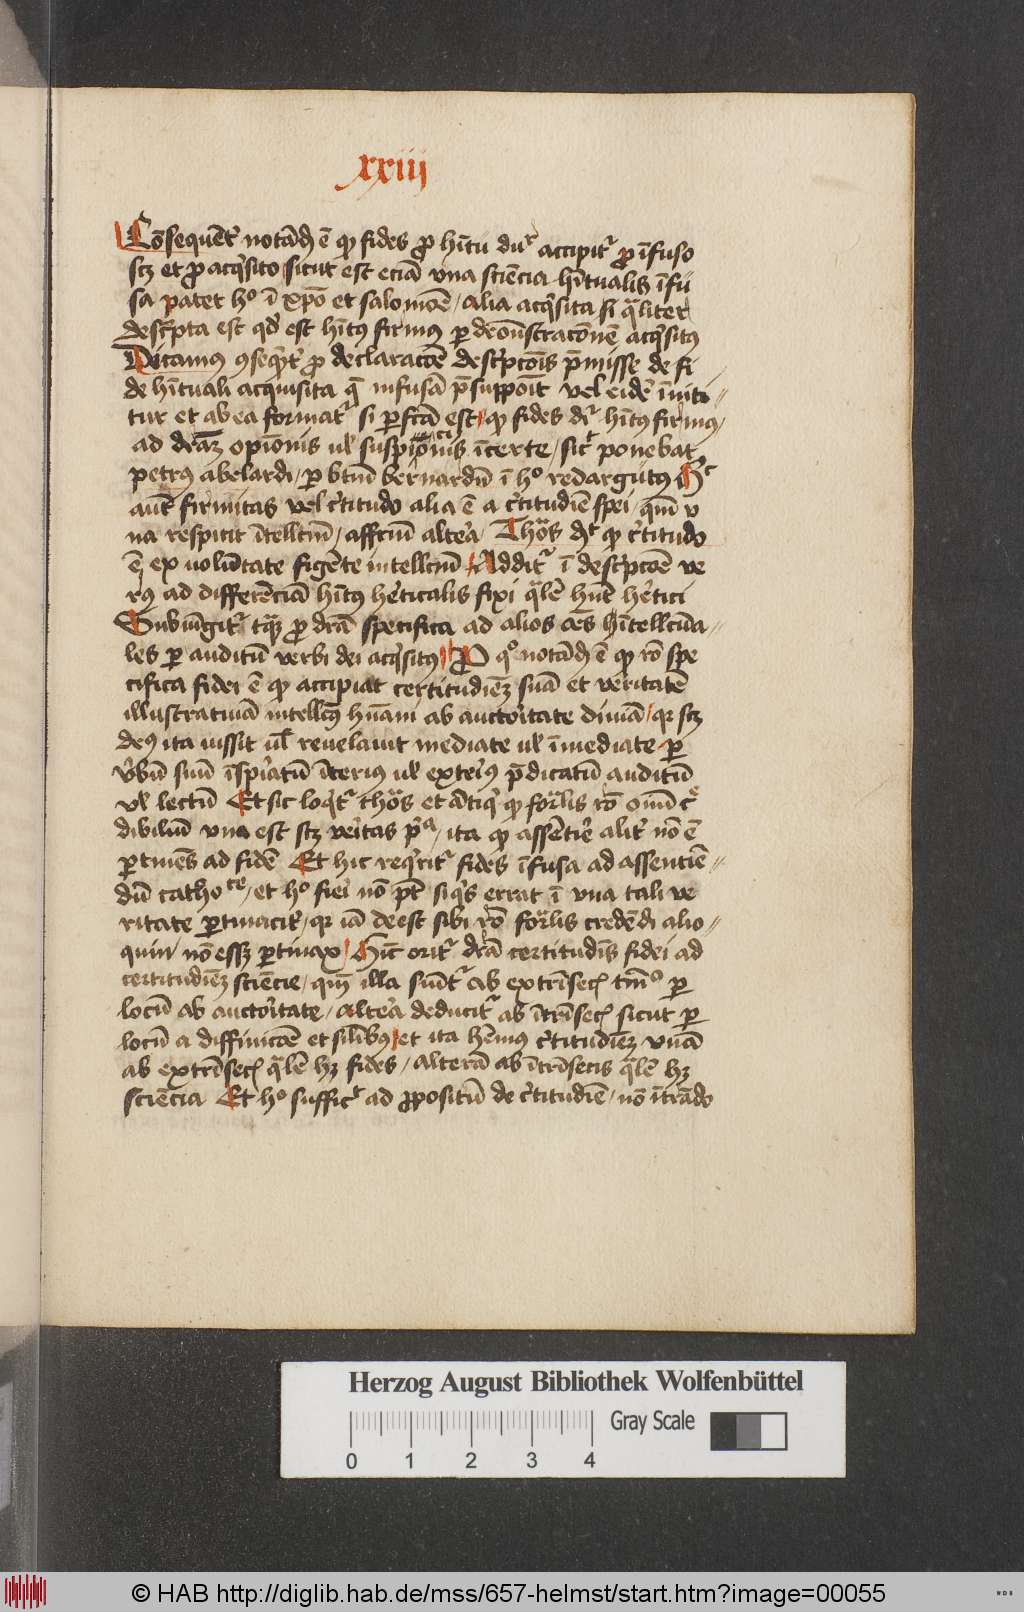 xxiii
Cōsequēt᷑ notād̄ ē qꝫ fides ꝓ hītu dr̄ accipit᷑ ꝓ īfuso
scꝫ et ꝓ acq̇sito sicut est eciā vna sciēcia hītualis īfu
sa patet hº ī xp̄o et salomōe / alia acq̇sita si q̄liter
descͥpta est qd̄ est hītꝰ firmꝰ ꝑ demōnstracōnē acq̇sitꝰ
Dicamus ꝯseq̄nt᷑ ꝓ declaracōe descͥpcōis p̄misse de fi
de hītuali acquisita q̄ infusā p̄suppōit vel eidē īniti⸗
tur et ab ea format᷑ si ꝑfcā est / qꝫ fides dr̄ hītꝰ firmꝰ /
ad drāꝫ opīonis ul̓ suspicīonis īcerte / sic᷑ ponebat
petrꝰ abelardi / ꝑ btm̄ bernardū ī hº redargutꝰ Hͨ
aut̄ firmitas vel c̓titudo alia ē a c̓titudīe spei / qm̄ v
na respicit ītellctm̄ / affctm̄ alte̓a Thōs dͬ qꝫ c̓titudo
ē ex volūtate figēte intellctm̄ Addit᷑ ī descͥpcōe ve
rꝰ ad differēciā hītꝰ he̓ticalis fixi q̄lē hn̄t he̓tici
Subiūgit᷑ tāqꝫ ꝓ drā specifica ad alios oēs hītellctūa⸗
les ꝑ auditū verbi dei acq̇sitꝰ Pº qº notād̄ ē qꝫ rō spe
cifica fidei ē qꝫ accipiat certitudīeꝫ suā et veritatē
illustratiuā intellctꝰ hūani ab auctoi̓tate diuīa / qꝛ scꝫ
deꝰ ita iussit ul̓ reuelauit mediate ul̓ īmediate ꝑ
v̓bū suū īspi̓atū īterius ul̓ exte̓iꝰ p̄dicatū auditū
ul̓ lectū Et sic loq̇t᷑ thōs et ātiq̇ qꝫ for̄lis rō oīm cͤ
dibiliū vna est scꝫ ve̓itas pͥª / ita qꝫ assētīe̓ alit᷑ nō ē
ꝑtinēs ad fidē Et hic req̇rit᷑ fides īfusa ad assenciē⸗
dū cathoᶜᵉ / et hº fie̓i nō pt̄ siq̇s errat ī vna tali ve
ritate ꝑtinacit᷑ / qꝛ iā deest sibi rō for̄lis credēdi alio⸗
quin nō essꝫ ꝑtinax Hīc orit᷑ drā certitudīs fidei ad
certitudīeꝫ sciēcie / qm̄ illa sūit᷑ ab extrīsecꝭ tm̄º ꝑ
locū ab auctoi̓tate / alte̓a deducit᷑ ab ītrīsecꝭ sicut ꝑ
locū a diffinicōe et sīlībꝰ et ita hēmꝰ c̓titudīeꝫ vnā
ab extrīsecꝭ q̄lē hꝫ fides / alterā ab ītrīsecis q̄lē hꝫ
sciēcia Et hº suffic᷑ ad ꝓpositū de c̓titudīe / nō ītrādo
Herzog August Bibliothek Wolfenbüttel
Gray Scale
0 1 2 3 4
© HAB http://diglib.hab.de/mss/657-helmst/start.htm?image=00055